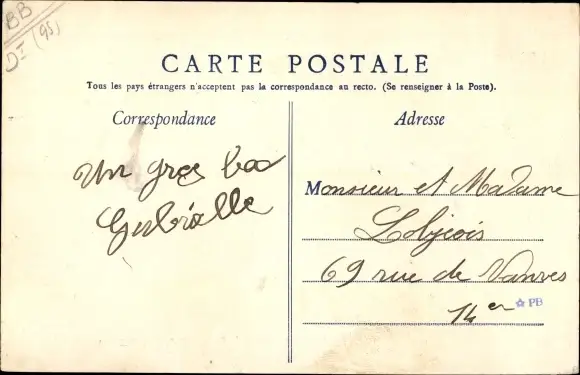 BB
DI (95)
CARTE POSTALE
Tous les pays étrangers n'acceptent pas la correspondance au recto. (Se renseigner à la Poste).
Correspondance
Un gros
Adresse
Monsieur et Madame
69 rue de Vanves
14er
PB